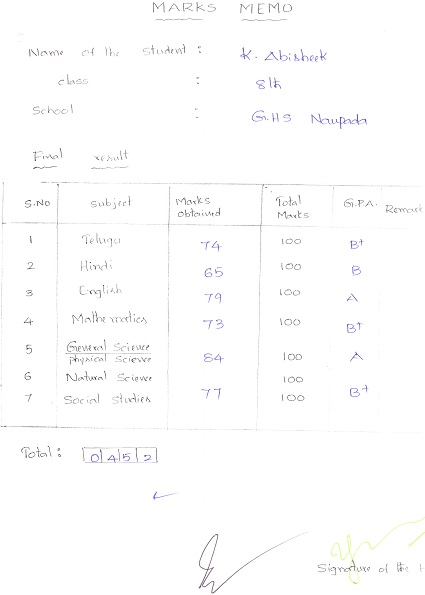 MARKS MEMO
Name of the student : K. Abisheek
class : 8th
School : G.H.S Naupada
Final result
S.No subject Marks obtained Total Marks G.P.A. Remark
1 Telugu 74 100 B+
2 Hindi 65 100 B
3 English 79 100 A
4 Mathematics 73 100 B+
5 General Science
physical Science 84 100 A
6 Natural Science 100
7 Social studies 77 100 B+
Total : 0452
Signature of the H